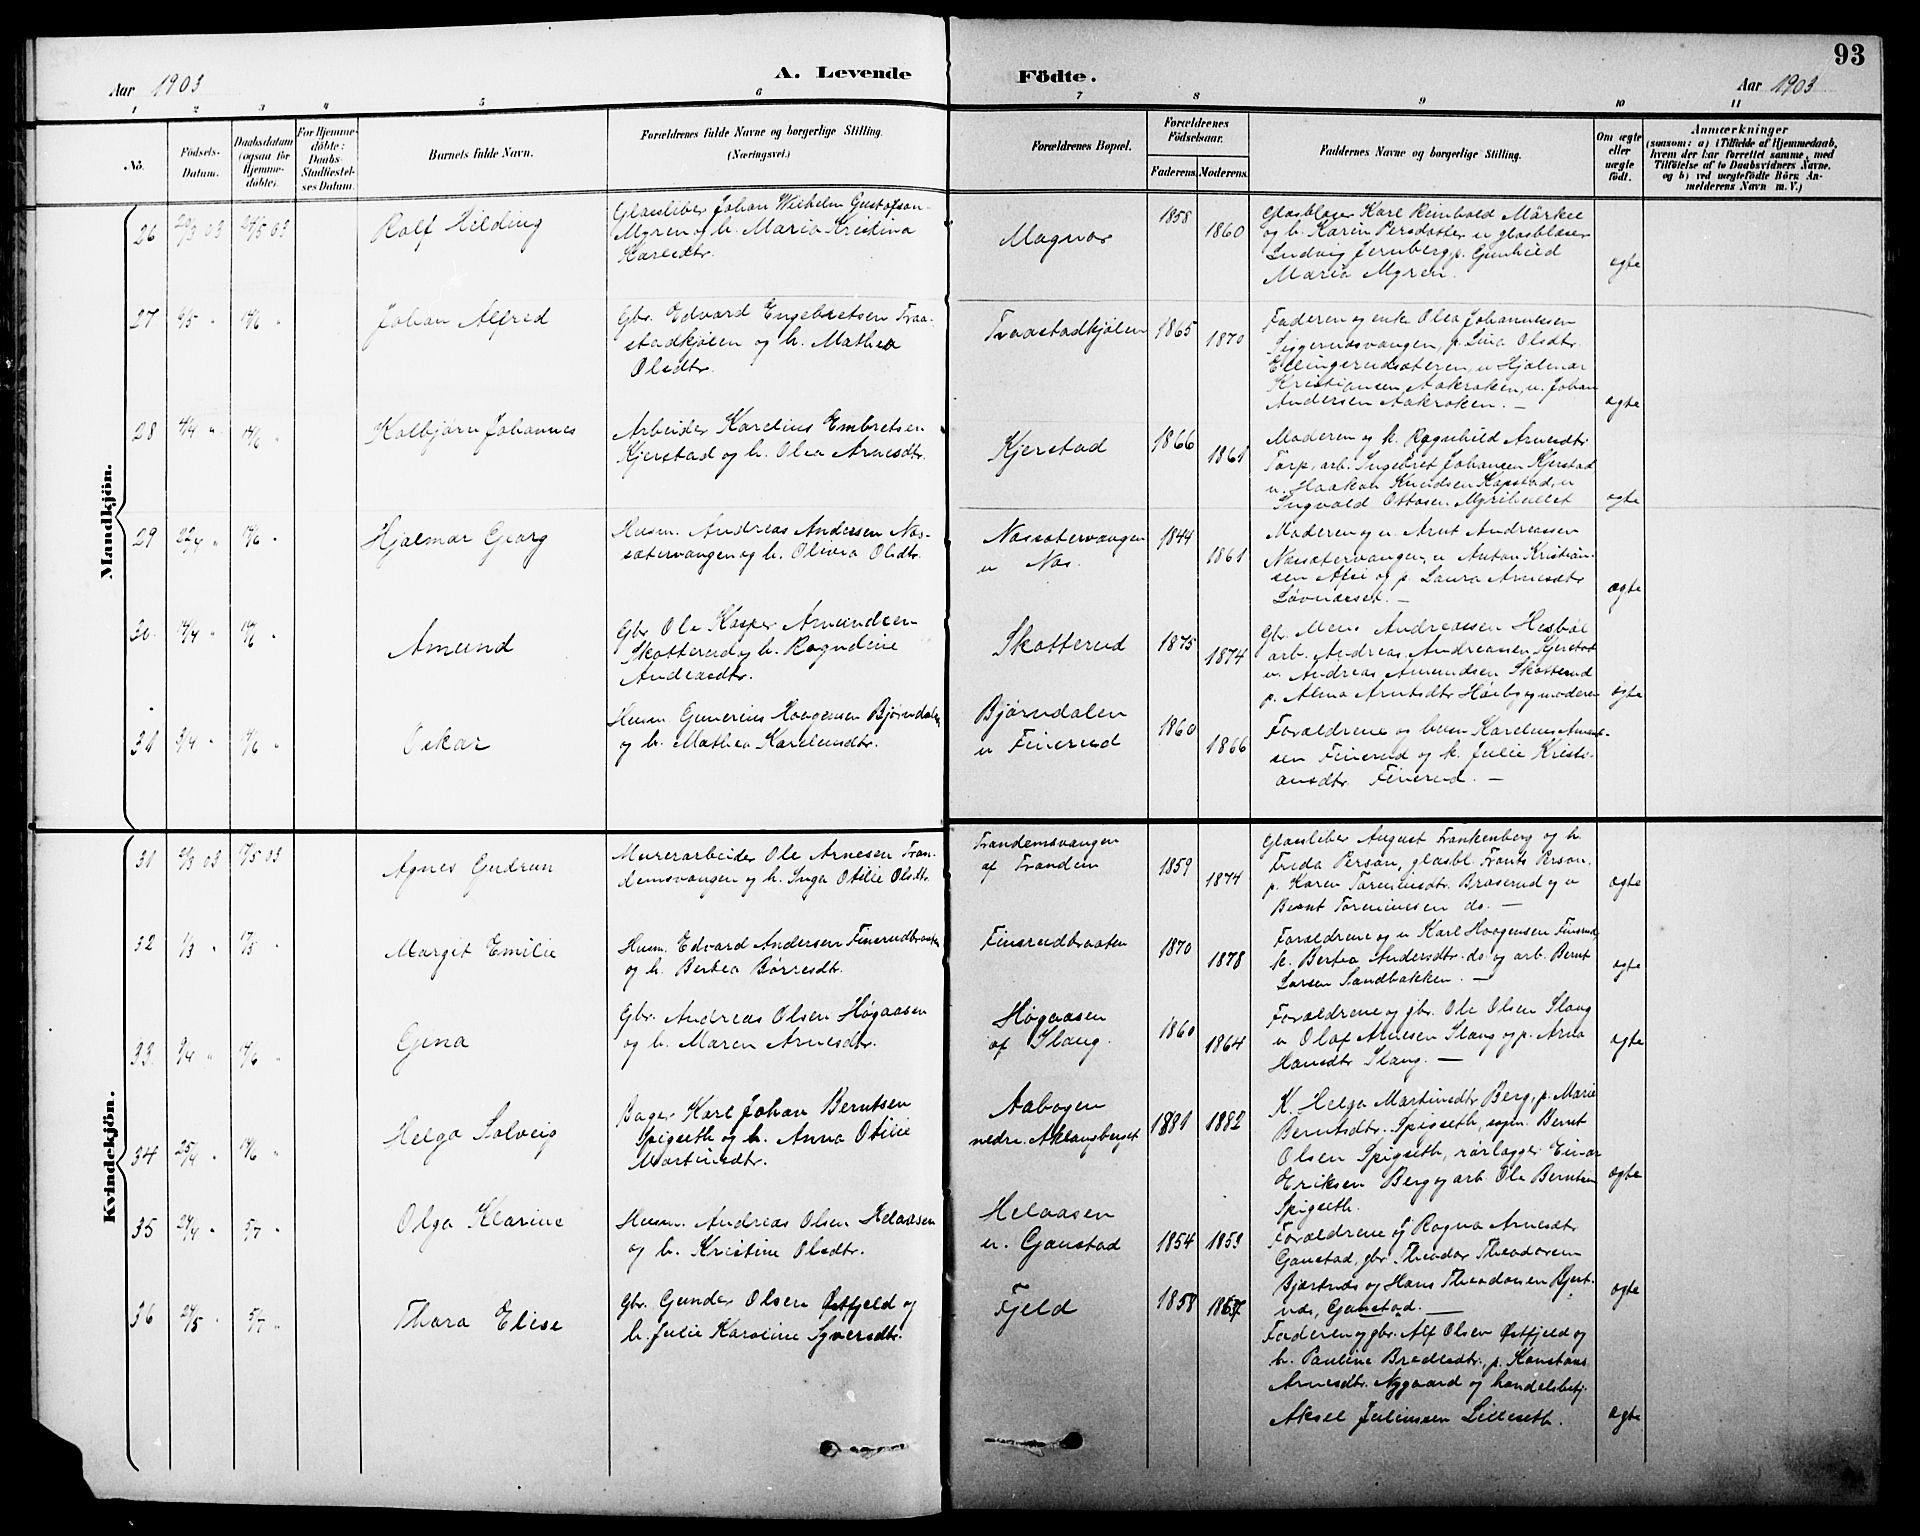 93
Aar 1903
A. Levende Födte.
Aar 1903
1 2 3 4 5 6 7 8 9 10 11
No.
Födsels-
Datum.
Daabsdatum
(ogsaa for
Hjemme-
döbte).
For Hjemme-
döbte:
Daabs-
Stadfæstel-
ses Datum.
Barnets fulde Navn.
Forældrenes fulde Navne og borgerlige Stilling.
(Næringsvei.)
Forældrenes Bopæl.
Forældrenes
Födselsaar.
Faderens. Moderens.
Faddernes Navne og borgerlige Stilling.
Om ægte
eller
uægte
födt.
Anmærkninger
(saasom: a) i Tilfælde af Hjemmedaab,
hvem der har forrettet samme, med
Tilföielse af to Daabsvidners Navne,
og b) ved uægtefödte Börn An-
melderens Navn m. V.)
Mandkjön.
26 20/3 03 24/5 03
Rolf Hilding
Glassliber Johan Wilhelm Gustafson
Myren og h. Maria Kristina
Karlsdtr.
Magnor
1858 1860
Glasblaser Karl Reinhold Märkel
og h. Karin Persdotter u glasblaser
Ludvig Jernberg, p. Gunhild
Maria Myren.
ægte
27 9/5 " 14/6 "
Johan Alfred
Gbr. Edvard Engebretsen Traa-
stadkjølen og h. Mathea
Olsdtr.
Traastadkjølen
1865 1870
Faderen og enke Olea Johannessen
Siggerudsvangen, p. Lina Olsdtr.
Ellingerudsæteren, u Hjalmar
Kristiansen Aakroken, u. Johan
Andersen Aakroken. —
ægte
28 4/4 " 14/6 "
Kolbjørn Johannes
Arbeider Karelius Embretsen
Kjerstad og h. Olea Arnesdtr.
Kjerstad
1866 1861
Moderen og k. Ragnhild Arnesdtr
Torp, arb. Ingebret Johansen Kjerstad
u. Haakon Knudsen Kapstad, u
Ingvald Ottosen Myrihullet
ægte
29 22/4 " 14/6 "
Hjalmar Georg
Husm. Andreas Andersen Næs-
sætervangen og h. Olivia Olsdtr.
Næssætervangen
u Næs.
1844 1861
Moderen og u. Arnt Andreassen
Næssætervangen, u Anton Kristian-
sen Alsi og p. Laura Arnesdtr
Løvnæset. —
ægte
30. 14/4 " 14/6 "
Amund
Gbr. Ole Kasper Amundsen
Skotterud og h. Ragndine
Andreasdtr.
Skotterud
1875 1874
Gbr. Mens Andreassen Hesbøl
arb. Andreas Andreassen Kjerstad
u. Andreas Amundsen Skotterud
p. Alma Arntsdtr Høiby og moderen
ægte
31 3/4 " 14/6 "
Oskar
Husm. Gunerius Haagensen Bjørndalen
og h. Mathea Kareliusdtr.
Bjørndalen
u Finerud
1860 1866
Forældrene og husm Karelius Amund-
sen Finerud og k. Julie Kristi-
ansdtr Finerud. —
Kvindekjön.
31 2/3 03 17/5 03
Agnes Gudrun
Murerarbeider Ole Arnesen Tran-
demsvangen og h. Inga Otilie Olsdtr.
Trandemsvangen
af Trandem
1859 1874
Glassliber August Frankenberg og h.
Frida Person, glasbl. Frants Person.
p. Karen Torenimsdtr. Braserud og u
Bernt Toreniussen do. —
ægte
32 1/3 " 17/5 "
Margit Emilie
Husm. Edvard Andersen Finsrudbraaten
og h. Bertea Børresdtr.
Finsrudbraaten
1870 1878
Forældrene og u Karl Haagensen Finsrud,
k. Bertea Andersdtr. do og arb. Bernt
Larsen Sandbakken. —
ægte
33. 9/4 " 14/6 "
Gina
Gbr. Andreas Olsen Høgaasen
og h. Maren Arnesdtr.
Høgaasen
af Slang.
1860 1864
Forældrene og gbr. Ole Olsen Slang
u Olaf Arnesen Slang og p. Arna
Hansdtr Slang. —
ægte
34 25/4 " 14/6 "
Helga Solveig
Bager Karl Johan Berntsen
Spigseth og h. Anna Otilie
Martinsdtr.
Aabogen
nedre Aklangberget
1881 1882
K. Helga Martinsdtr Berg, p. Marie
Berntsdtr. Spigseth, sagm. Bernt
Olsen Spigseth, rørlægger Einar
Eriksen Berg og arb. Ole Berntsen
Spigseth.
ægte
35 24/4 " 5/7 "
Olga Klarine
Husm. Andreas Olsen Helaasen
og h. Kristine Olsdtr.
Helaasen
u. Gaustad
1854 1859
Forældrene og Ragna Arnesdtr
Gaustad, gbr. Theodor Theodorsen
Bjertnæs og Hans Theodorsen Bjert-
næs, Gaustad. —
ægte
36 24/5 " 5/7 "
Thora Elise
Gbr. Gunder Olsen Østfjeld og
h. Julie Karoline Syversdtr.
Fjeld
1858 1867
Faderen og gbr. Alf Olsen Østfjeld og
h. Pauline Bredesdtr., p. Konstans
Arnesdtr. Nygaard og handelsbetj.
Aksel Juliussen Lilleseth.
ægte